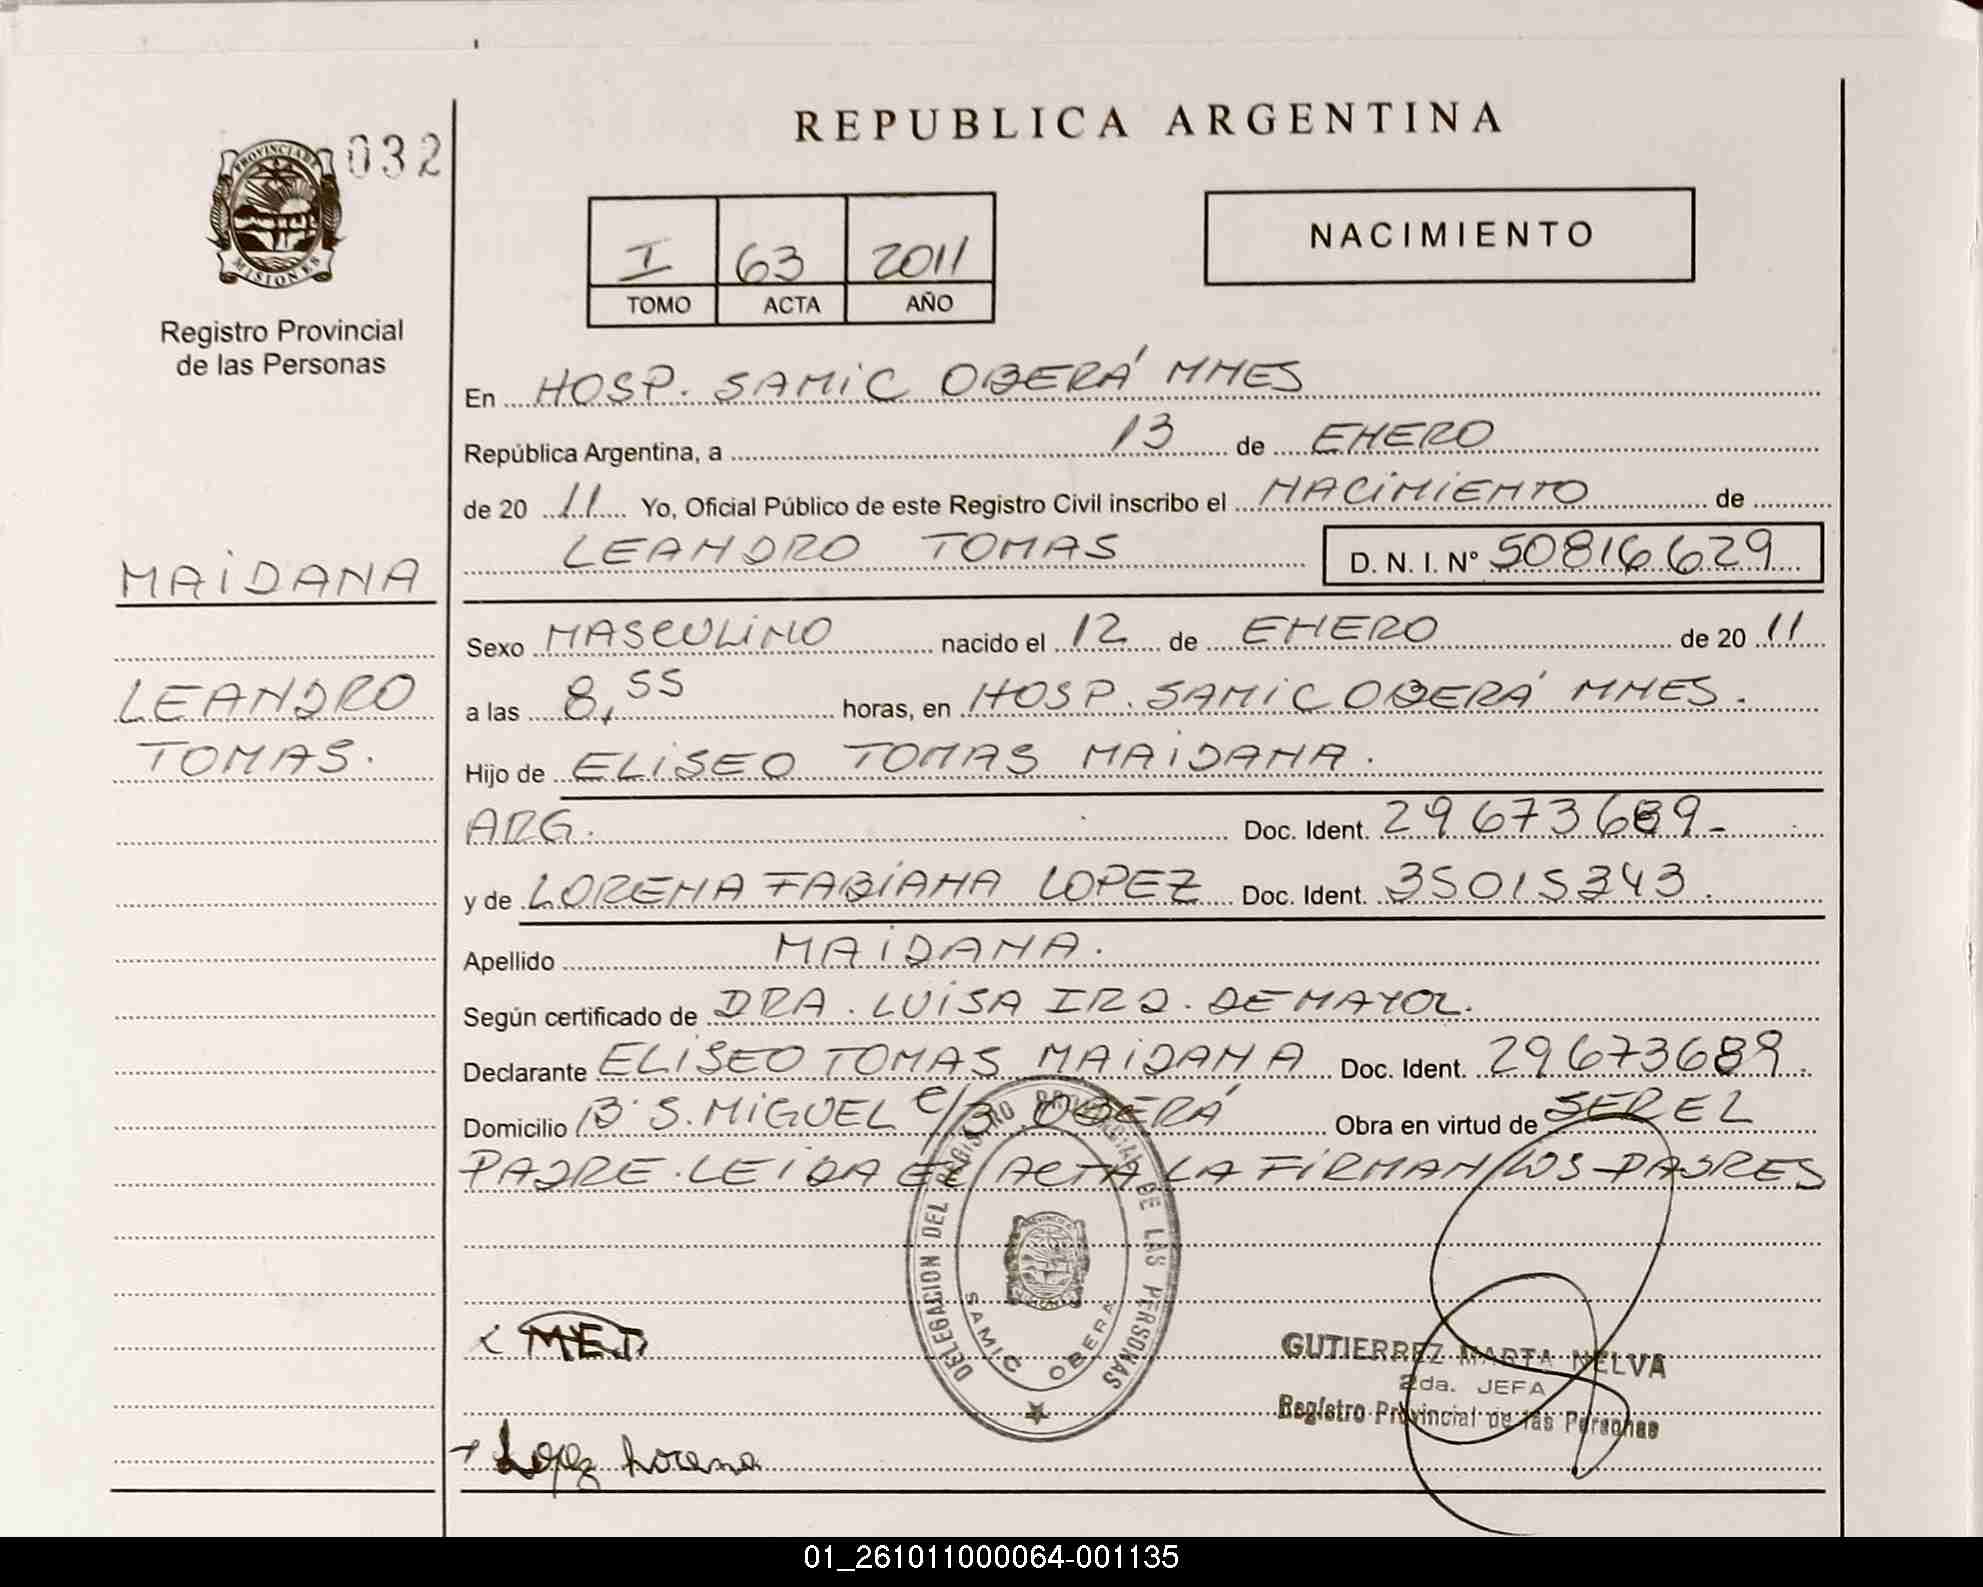 032
PROVINCIA DE
MISIONES
Registro Provincial
de las Personas
MAIDANA
LEANDRO
TOMAS.
REPUBLICA ARGENTINA
I 63 2011
TOMO ACTA AÑO
NACIMIENTO
En HOSP. SAMIC OBERÁ MNES
República Argentina, a 13 de ENERO
de 20 11 Yo, Oficial Público de este Registro Civil inscribo el NACIMIENTO de
LEANDRO TOMAS D. N. I. Nº 50816629
Sexo MASCULINO nacido el 12 de ENERO de 20 11
a las 8,55 horas, en HOSP. SAMIC OBERÁ MNES.
Hijo de ELISEO TOMAS MAIDANA.
ARG. Doc. Ident. 29673689-
y de LORENA FABIANA LOPEZ Doc. Ident. 35015343.
Apellido MAIDANA.
Según certificado de DRA. LUISA IRD. DEMAYOL.
Declarante ELISEO TOMAS MAIDANA Doc. Ident. 29673689.
Domicilio Bº S. MIGUEL C/3 OBERÁ Obra en virtud de SER EL
PADRE. LEIDA EL ACTA LA FIRMAN LOS PADRES
DELEGACION DEL REGISTRO PROVINCIAL DE LAS PERSONAS
SAMIC OBERA
MET
GUTIERREZ MARTA NELVA
2da. JEFA
Registro Provincial de las Personas
Lopez Lorena
01_261011000064-001135